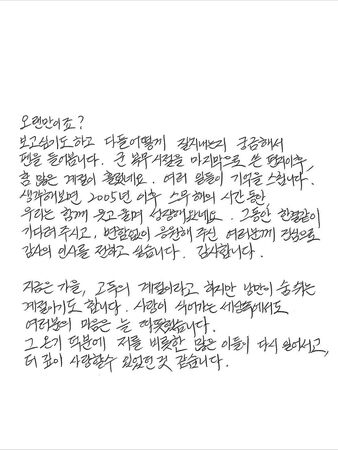 오랜만이죠?
보고싶기도하고 다들어떻게 잘지내는지 궁금해서
펜을 들어봅니다. 군 복무시절을 마지막으로 쓴 편지이후,
참 많은 계절이 흘렀네요. 여러 일들이 기억을 스칩니다.
생각해보면, 2005년 이후 스무 해의 시간 동안,
우리는 함께 웃고 울며 성장해왔네요. 그동안 한결같이
기다려주시고, 변함없이 응원해 주신 여러분께 진심으로
감사의 인사를 전하고 싶습니다. 감사합니다.
지금은 가을, 고독의 계절이라고 하지만 낭만이 숨쉬는
계절이기도 합니다. 사랑이 식어가는 세상속에서도
여러분의 마음은 늘 따뜻했습니다.
그 온기 덕분에 저를 비롯한 많은 이들이 다시 일어서고,
더 깊이 사랑할수 있었던 것 같습니다.